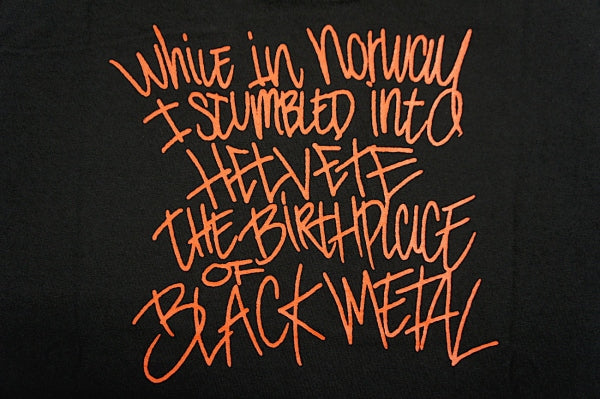 While in Norway
I STUMBLED intO
HELVETE
THE BiRTHPlaCE
OF
BLACK METAL